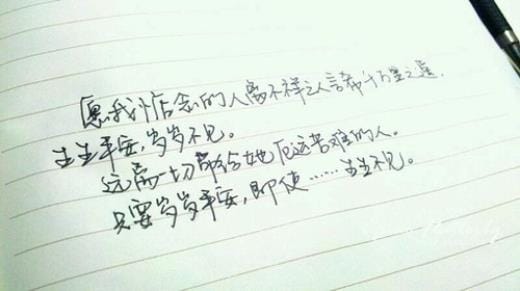 愿我心中惦念的人离不祥之人言希千万里之遥。
生生平安,岁岁不见。
远离一切带给她厄运苦难的人。
只要岁岁平安,即使……生生不见。